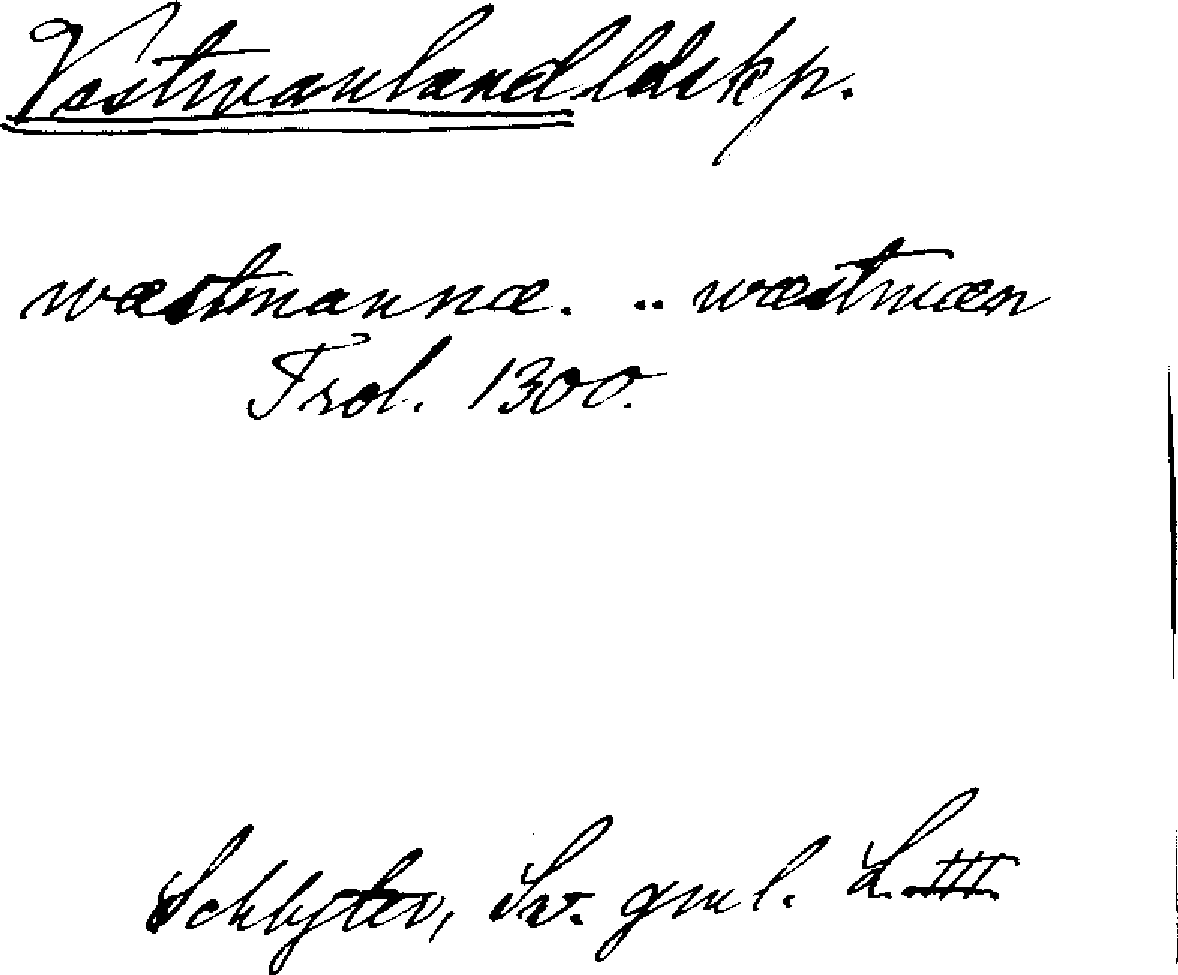 Västmanland ldskp.
wæstmannæ. .. wæstmæn
Frol. 1300.
Schlyter, Sv. gml. L. III.